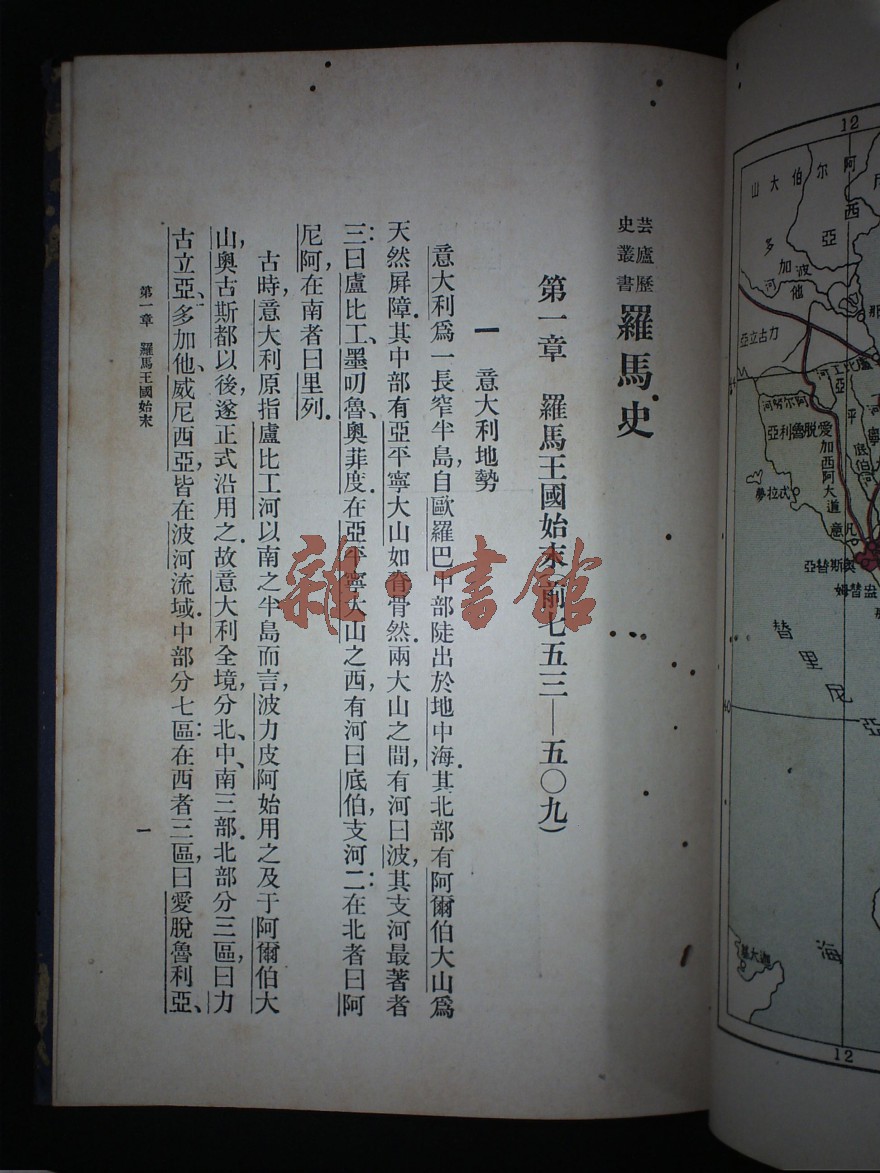 芸廬歷
史叢書
羅馬史
第一章 羅馬王國始末(前七五三—五〇九)
一 意大利地勢
意大利爲一長窄半島,自歐羅巴中部陡出於地中海.其北部有阿爾伯大山爲
天然屛障.其中部有亞平寧大山如脊骨然.兩大山之間,有河曰波,其支河最著者
三:曰盧比工、墨叨魯、奥菲度.在亞平寧大山之西,有河曰底伯,支河二:在北者曰阿
尼阿,在南者曰里列.
古時,意大利原指盧比工河以南之半島而言,波力皮阿始用之及于阿爾伯大
山,奥古斯都以後,遂正式沿用之.故意大利全境,分北、中、南三部.北部分三區,曰力
古立亞、多加他、威尼西亞,皆在波河流域.中部分七區:在西者三區,曰愛脫魯利亞、
第一章 羅馬王國始末
一
雜·書館
12
阿爾伯大山
西
亞
多加他
波河
力古立亞
44
盧比工河
亞平寧
阿爾努河
愛脫魯利亞
加西阿大道
底伯
式拉夢
凡
意
奥斯替亞
盎替姆
40
替里尼
亞
海
12